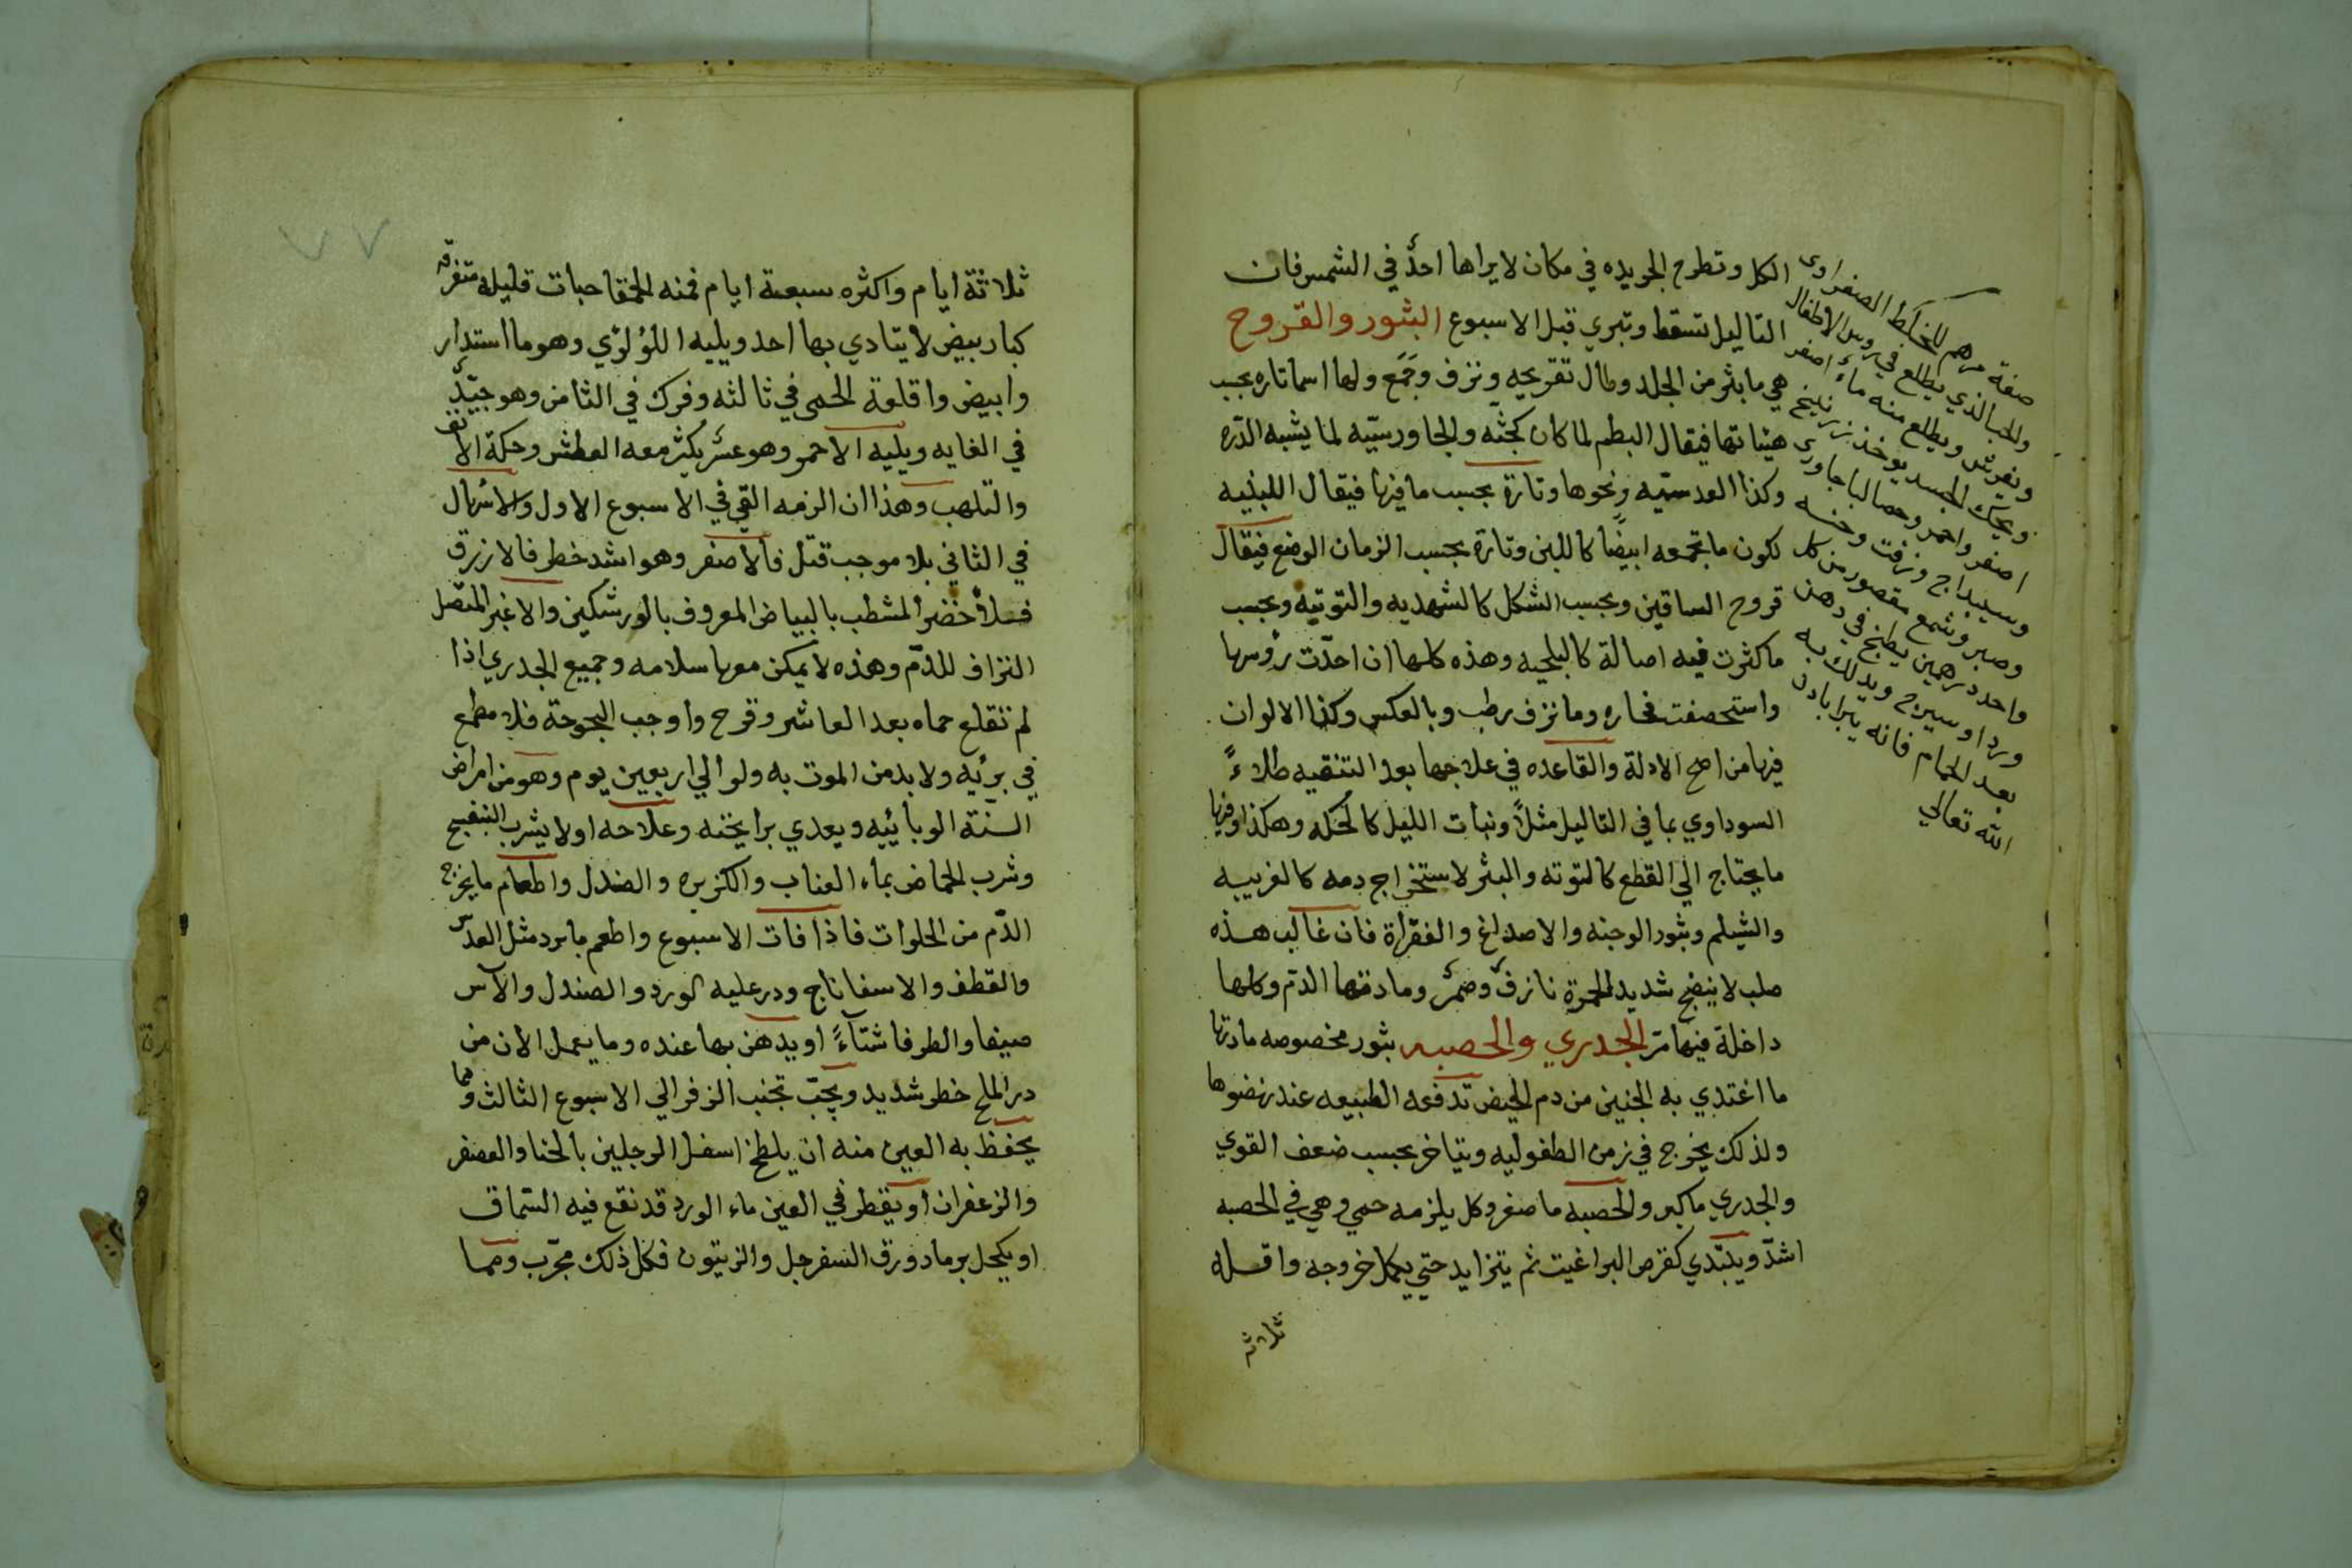 الكل وتطرح الجريده في مكان لايراها احدٌ في الشمس فان
التاليل تسقط وتبري قبل الاسبوع البثور والقروح
هي ما بثر من الجلد وطال تقريحه ونزف وجَمَع ولها اسما تاره بحسب
هيئاتها فيقال البطم لما كان كجثّه والجاورسيّه لما يشبه الدّره
وكذا العدسيّه ونحوها وتارة بحسب ما فيها فيقال اللبنيه
لكون ما تجمعه ابيضًا كاللبن وتارة بحسب الزمان الوضع فيقال
قروح الساقين وبحسب الشكل كالشهديه والتوتيه وبحسب
ماكثرت فيه اصالة كالبلحيه وهذه كلها ان احدّت رؤسها
واستحصفت فحاره وما نزف رطب وبالعكس وكذا الالوان
فيها من اصح الادلة والقاعده في علاجها بعد التنقيه طلاءً
السوداوي بما في التاليل مثلاً ونبات الليل كالحكه وهكذا وفيها
ما يحتاج الي القطع كالتوته والبثر لاستخراج دمه كالغريبيه
والشيلم وبثور الوجنه والاصداغ والفقراة فان غالب هذه
صلب لا ينضج شديد الحمرة نازفٌ وضمرٌ ومادتها الدّم وكلها
داخلة فيما مرّ الجدري والحصبه بثور مخصوصه مادتها
ما اغتدي به الجنين من دم الحيض تدفعه الطبيعه عند نهضوها
ولذلك يخرج في زمن الطفوليه ويتاخر بحسب ضعف القوي
والجدري ماكبر والحصبه ما صغر وكل يلزمه حمي وهي في الحصبه
اشدّ ويبتّدي كقرص البراغيت ثم يتزايد حتي يكمل خروجه واقله
ثلاثه
صفة مرهم للخلط الصفراوي
والحب الذي يطلع في روس الاطفال
ويفرش ويطلع منه ماء اصفر
ويحك الجسد يوخذ زرنيخ
اصفر واحمر وحصالباجاوري
وسبيداج وزفت وخنسه
وصبر وشمع مقصور من كل
واحد درهمين يطبخ في دهن
ورد او سيرج ويدلك به
بعد الحمام فانه يابرا باذن
الله تعالي
٧٧
ثلاثة ايام واكثره سبعة ايام فمنه الحمقا حبات قليله متفرقه
كبار بيض لا يتادي بها احد ويليه اللؤلؤي وهو ما استدار
وابيض واقلعة الحمي في ثالثه وفرك في الثامن وهو جيّدٌ
في الغايه ويليه الاحمر وهو عسرٌ يكثر معه العطش وحكة الانف
والتلهب وهذا ان الزمه القي في الاسبوع الاول والاسهال
في الثاني بلا موجب قتل فالاصفر وهو اشد خطر فالازرق
فالاخضر المشطب بالبياض المعروف بالورشكين والاغبر المتصل
النزاف للدّم وهذه لا يمكن معها سلامه وجميع الجدري اذا
لم تقلع حماه بعد العاشر وقرح واوجب البحوحة فلا مطمع
في برئيه ولا بد من الموت به ولو الي اربعين يوم وهو من امراض
السنة الوبائيّه ويعدي برايحته وعلاحه اولا يشرب البنفسج
وشرب الحماض بماء العناب والكزبره والصندل واطعام ما يخرج
الدّم من الحلوات فاذا فات الاسبوع واطعم ما برد مثل العدس
والقطف والاسفاناج ودر عليه الورد والصندل والآس
صيفا والطرفا شتآءً او يدهن بها عنده وما يعمل الأن من
در الملح خطر شديد ويجبّ تجنب الزفر الي الاسبوع الثالث ومما
يحفظ به العين منه ان يلطخ اسفل الرجلين بالحنا والعصفر
والزعفران او يقطر في العين ماء الورد قد نقع فيه السّماق
او يكحل برماد ورق السفرجل والزيتون فكل ذلك مجرّب ومما